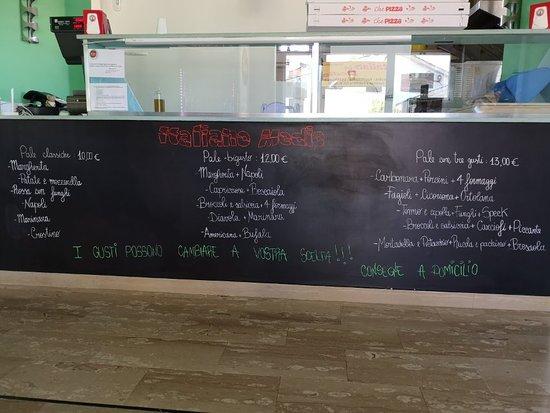 che PIZZA
che PIZZA
Italiano Medio
Pale classiche 10,00€
-Margherita
-Patate e mozzarella
-Rossa con funghi
-Napoli
-Marinara
-Crostino
Pale bigusto - 12,00€
-Margherita + Napoli
-Capricciosa + Boscaiola
-Broccoli e salsiccia + 4 formaggi
-Diavola + Marinara
-Americana + Bufala
Pale con tre gusti - 13,00€
-Carbonara + Porcini + 4 formaggi
-Fagioli + Ortolana
-Funghi + Speck
-Broccoli e salsiccia + Carciofi + Piccante
-Mortadella e Pistacchio + Rucola e pachino + Bresaola
I GUSTI POSSONO CAMBIARE A VOSTRA SCELTA!!!
CONSEGNE A DOMICILIO